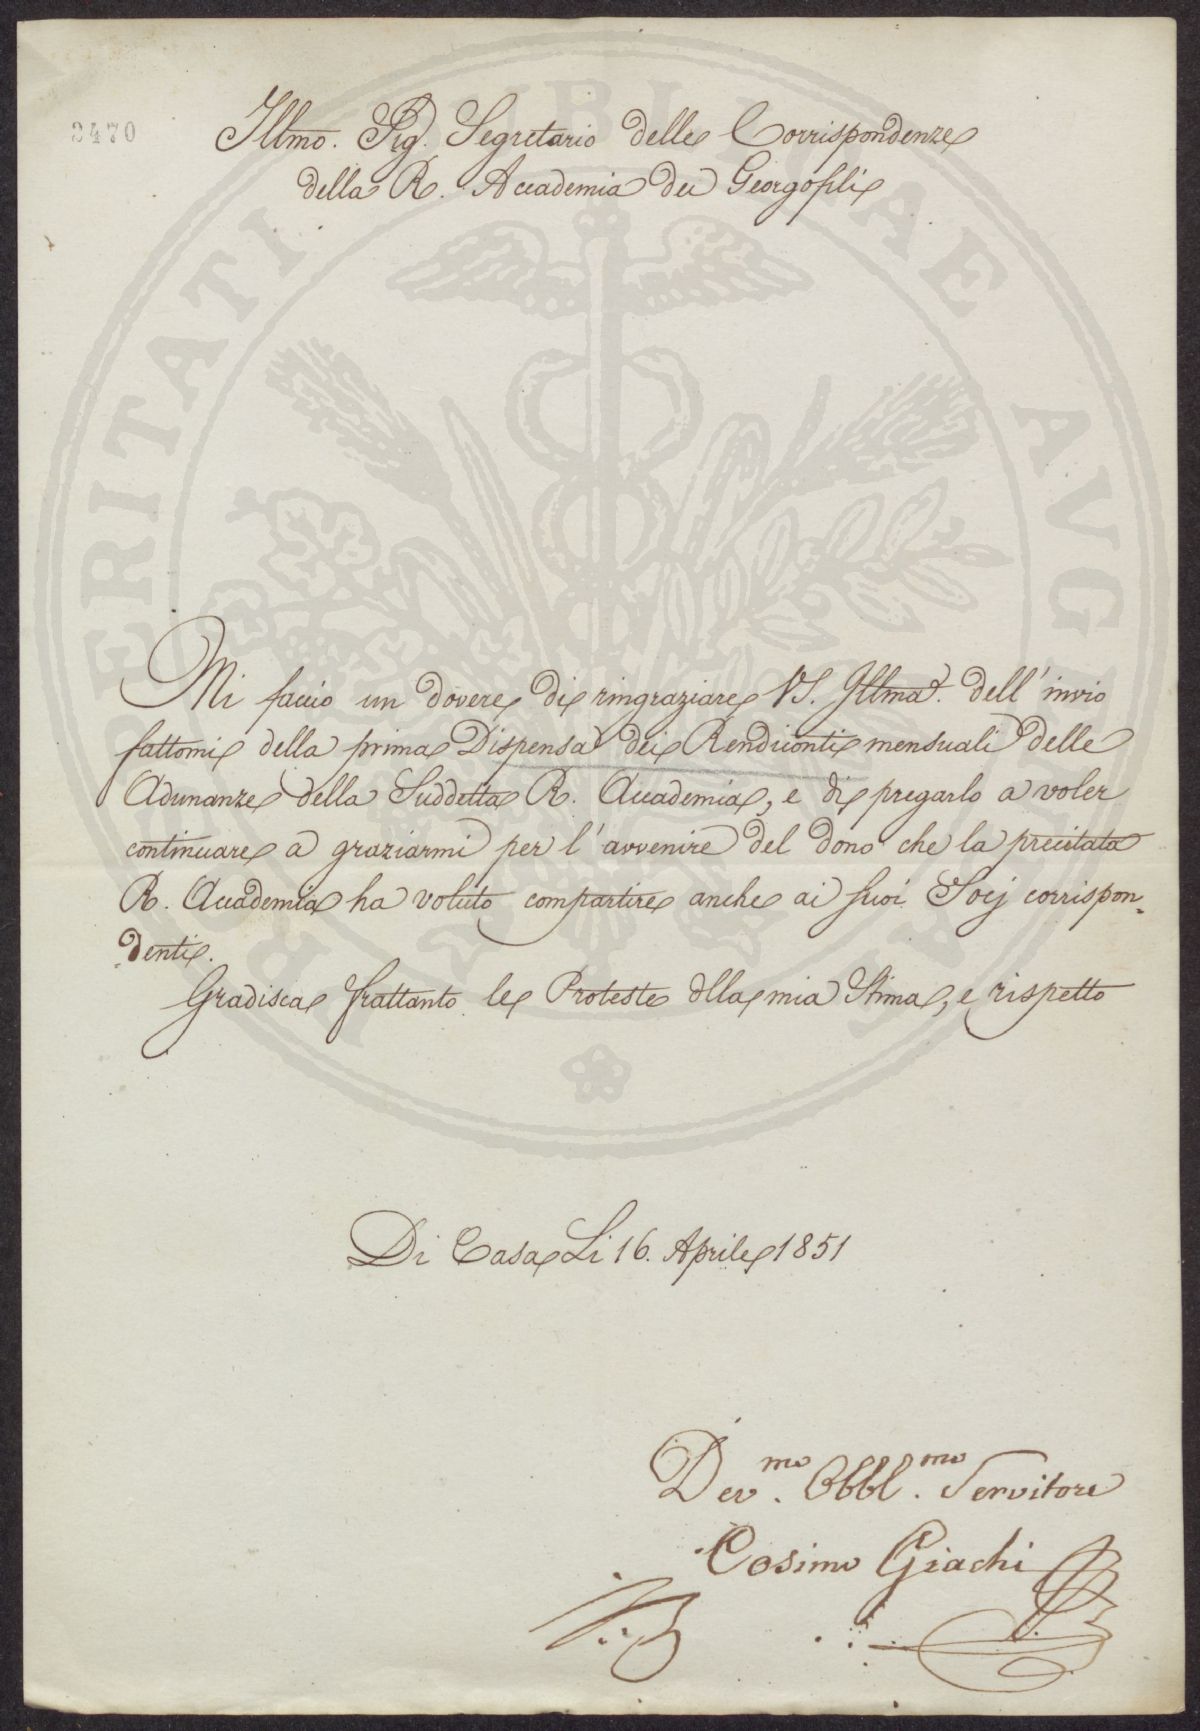 2470
Illmo. Sig. Segretario delle Corrispondenze
della R. Accademia dei Georgofili
Mi faccio un dovere di ringraziare VS. Illma. dell' invio
fattomi della prima Dispensa dei Rendiconti mensuali delle
Adunanze della Suddetta R. Accademia, e di pregarlo a voler
continuare a graziarmi per l' avvenire del dono che la precitata
R. Accademia ha voluto compartire anche ai suoi Socj corrispon-
denti.
Gradisca frattanto le Proteste della mia Stima, e rispetto
Di Casa Li 16. Aprile 1851
Dev.mo Obbl.mo Servitore
Cosimo Giachi
PROSPERITATI PUBLICAE AUGENDAE